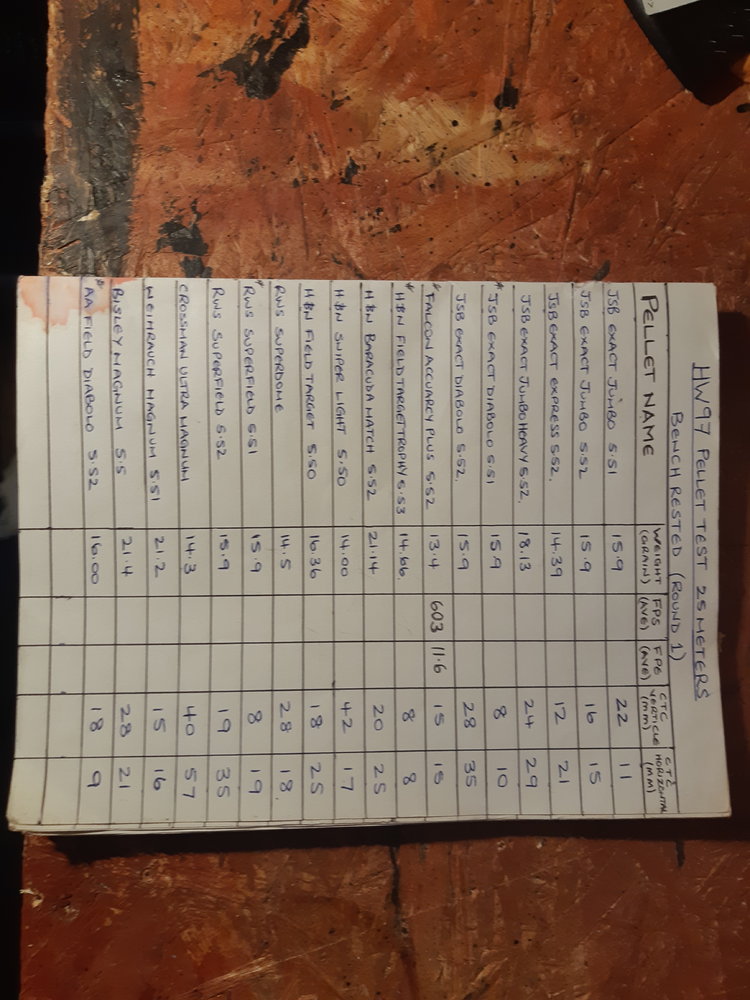 HW97 PELLET TEST 25 METERS
BENCH RESTED (ROUND 1)
PELLET NAME WEIGHT (GRAIN) FPS (AVE) FPE (AVE) CTC VERTICLE (MM) CTC HORIZONTAL (MM)
JSB EXACT JUMBO 5.51 15.9 22 11
JSB EXACT JUMBO 5.52 15.9 16 15
JSB EXACT EXPRESS 5.52. 14.39 12 21
JSB EXACT JUMBO HEAVY 5.52. 18.13 24 29
*JSB EXACT DIABOLO 5.51 15.9 8 10
JSB EXACT DIABOLO 5.52. 15.9 28 35
*FALCON ACCUARCY PLUS 5.52 13.4 603 11.6 15 15
*H&N FIELD TARGET TROPHY 5.53 14.66 8 8
H&N BARACUDA MATCH 5.52 21.14 20 25
H&N SNIPER LIGHT 5.50 14.00 42 17
H&N FIELD TARGET 5.50 16.36 18 25
RWS SUPERDOME 14.5 28 18
*RWS SUPERFIELD 5.51 15.9 8 19
RWS SUPERFIELD 5.52 15.9 19 35
CROSSMAN ULTRA MAGNUM 14.3 40 57
WEIHRAUCH MAGNUM 5.51 21.2 15 16
BISLEY MAGNUM 5.5 21.4 28 21
*AA FIELD DIABOLO 5.52 16.00 18 9